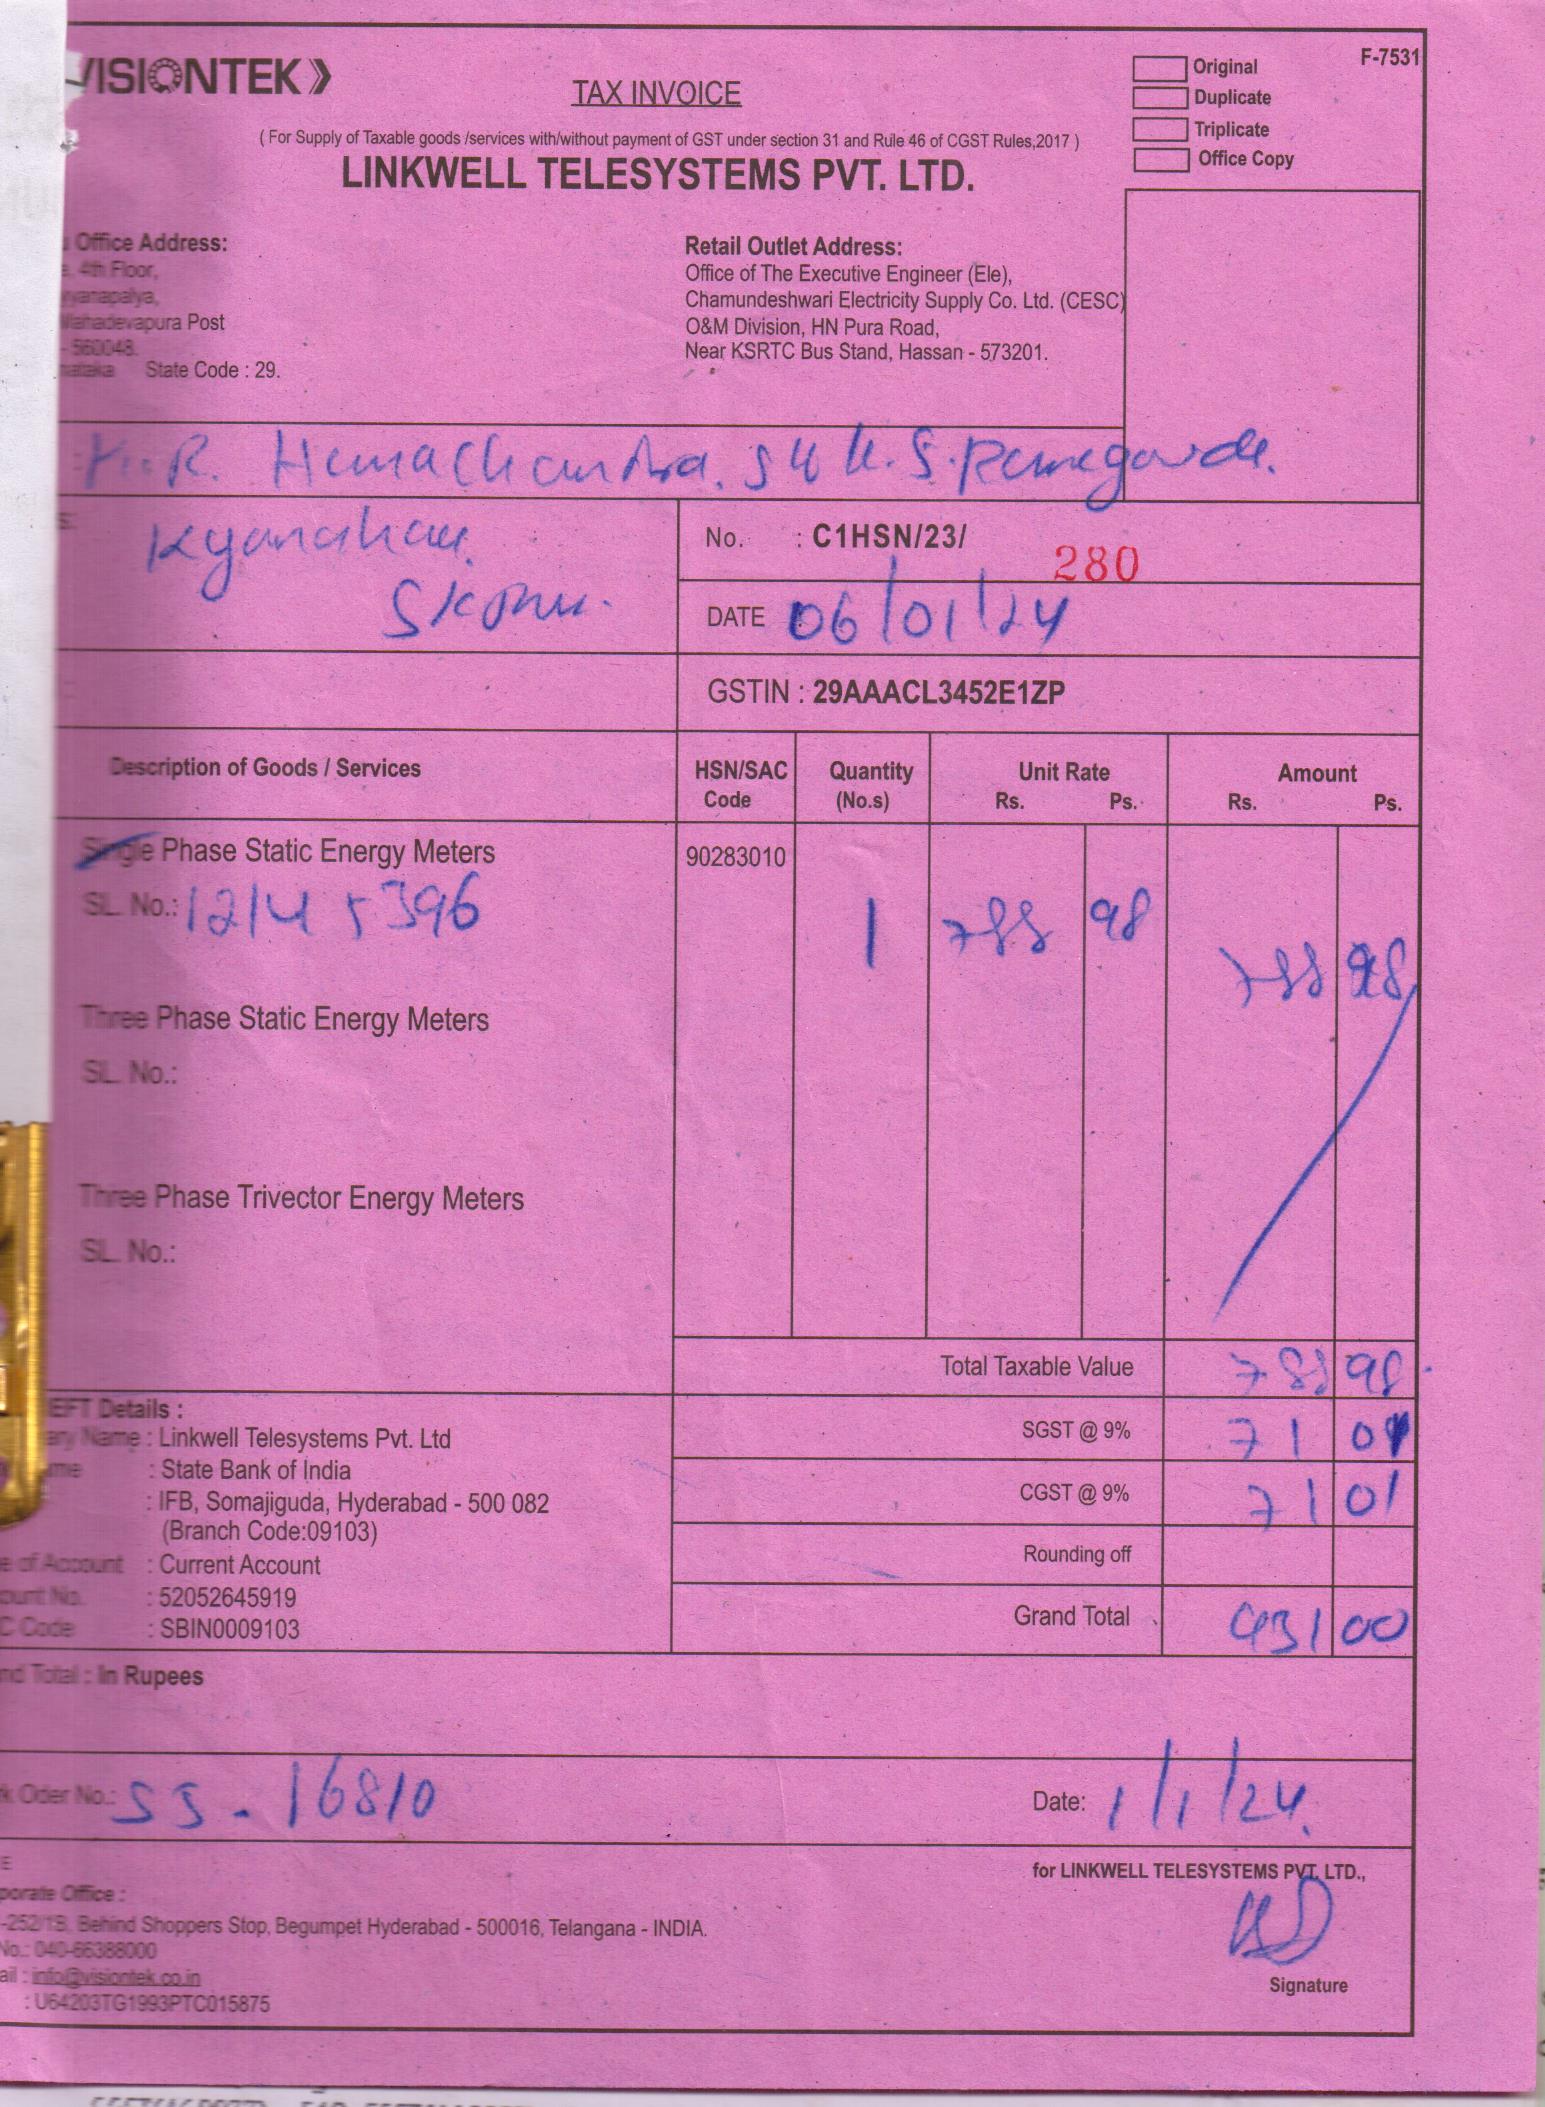 VISIONTEK
TAX INVOICE
F-7531
Original
Duplicate
Triplicate
Office Copy
( For Supply of Taxable goods /services with/without payment of GST under section 31 and Rule 46 of CGST Rules,2017 )
LINKWELL TELESYSTEMS PVT. LTD.
Office Address:
4th Floor,
Mahadevapura Post
- 560048.
State Code : 29.
Retail Outlet Address:
Office of The Executive Engineer (Ele),
Chamundeshwari Electricity Supply Co. Ltd. (CESC)
O&M Division, HN Pura Road,
Near KSRTC Bus Stand, Hassan - 573201.
R. Hemachandra. K. S.
No. : C1HSN/23/ 280
DATE 06/01/24
GSTIN : 29AAACL3452E1ZP
Description of Goods / Services
HSN/SAC Code
Quantity (No.s)
Unit Rate Rs. Ps.
Amount Rs. Ps.
Single Phase Static Energy Meters 90283010
SL. No.: 12145396 1 788 98 788 98
Three Phase Static Energy Meters
SL. No.:
Three Phase Trivector Energy Meters
SL. No.:
Total Taxable Value 788 98
SGST @ 9% 71 01
CGST @ 9% 71 01
Rounding off
Grand Total 931 00
Details :
Name : Linkwell Telesystems Pvt. Ltd
: State Bank of India
: IFB, Somajiguda, Hyderabad - 500 082
(Branch Code:09103)
of Account : Current Account
No. : 52052645919
Code : SBIN0009103
Total : In Rupees
Oder No.: SS - 16810
Date: 1/1/24.
for LINKWELL TELESYSTEMS PVT. LTD.,
Office :
-252/1B, Behind Shoppers Stop, Begumpet Hyderabad - 500016, Telangana - INDIA.
No.: 040-66388000
: info@visiontek.co.in
: U64203TG1993PTC015875
Signature